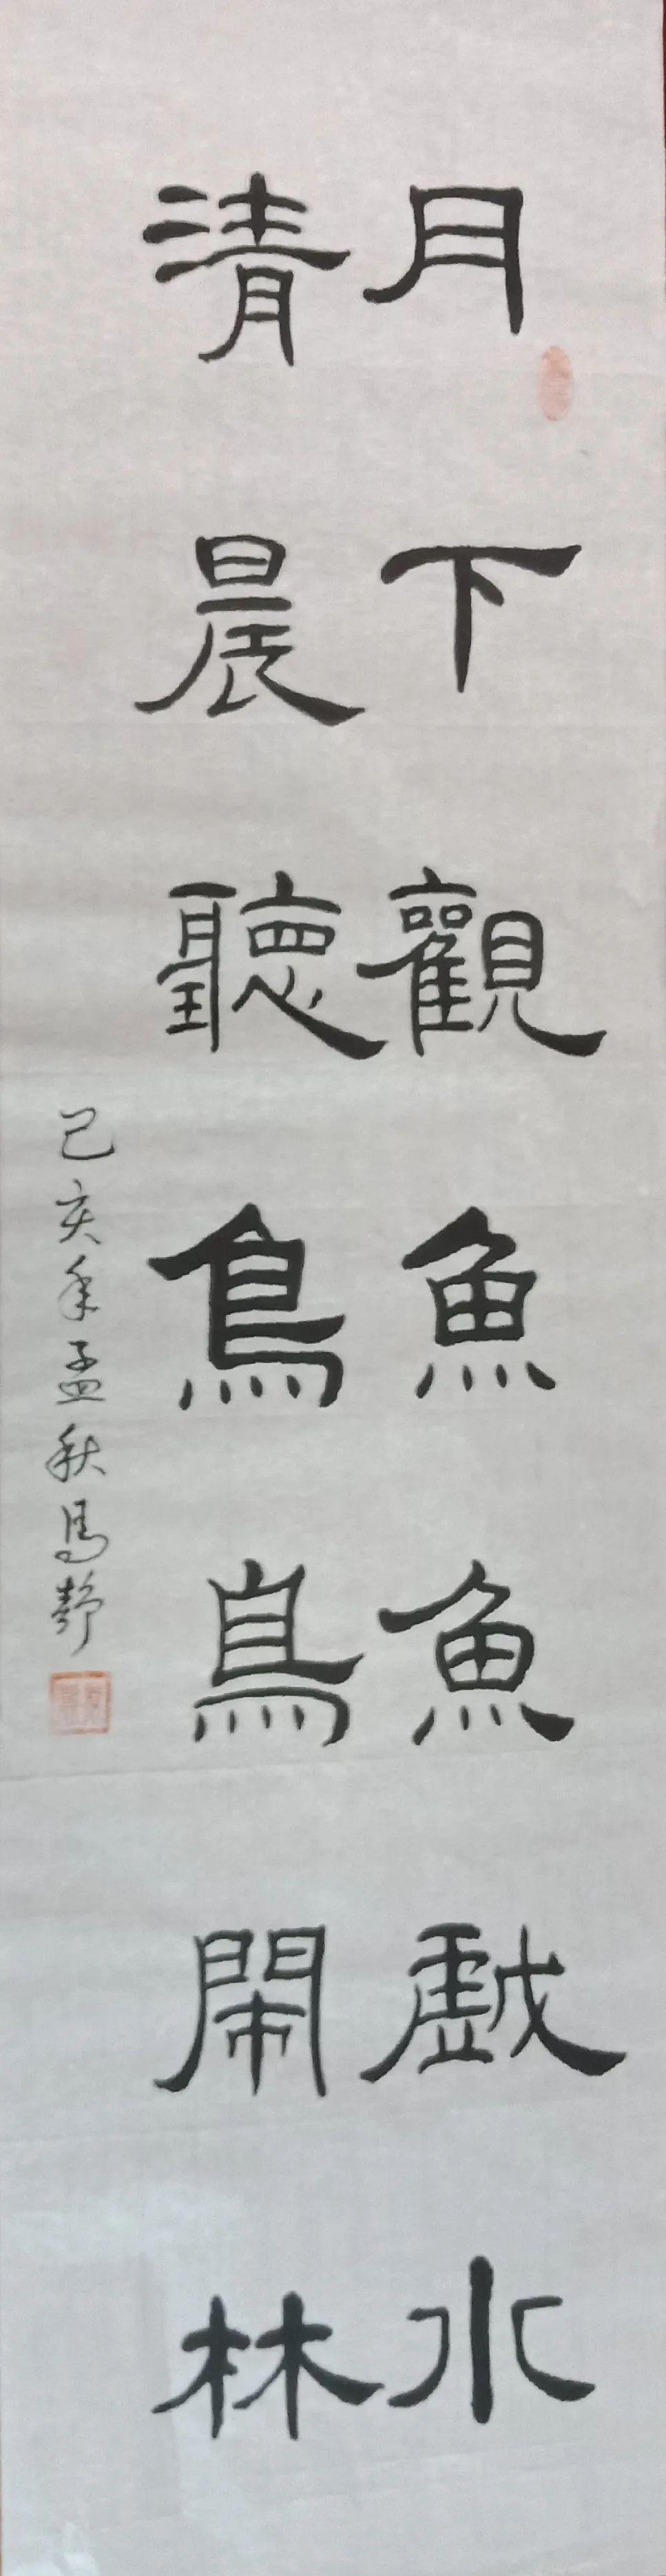 月下觀魚魚戲水
清晨聽鳥鳥鬧林
己亥年孟秋馬靜